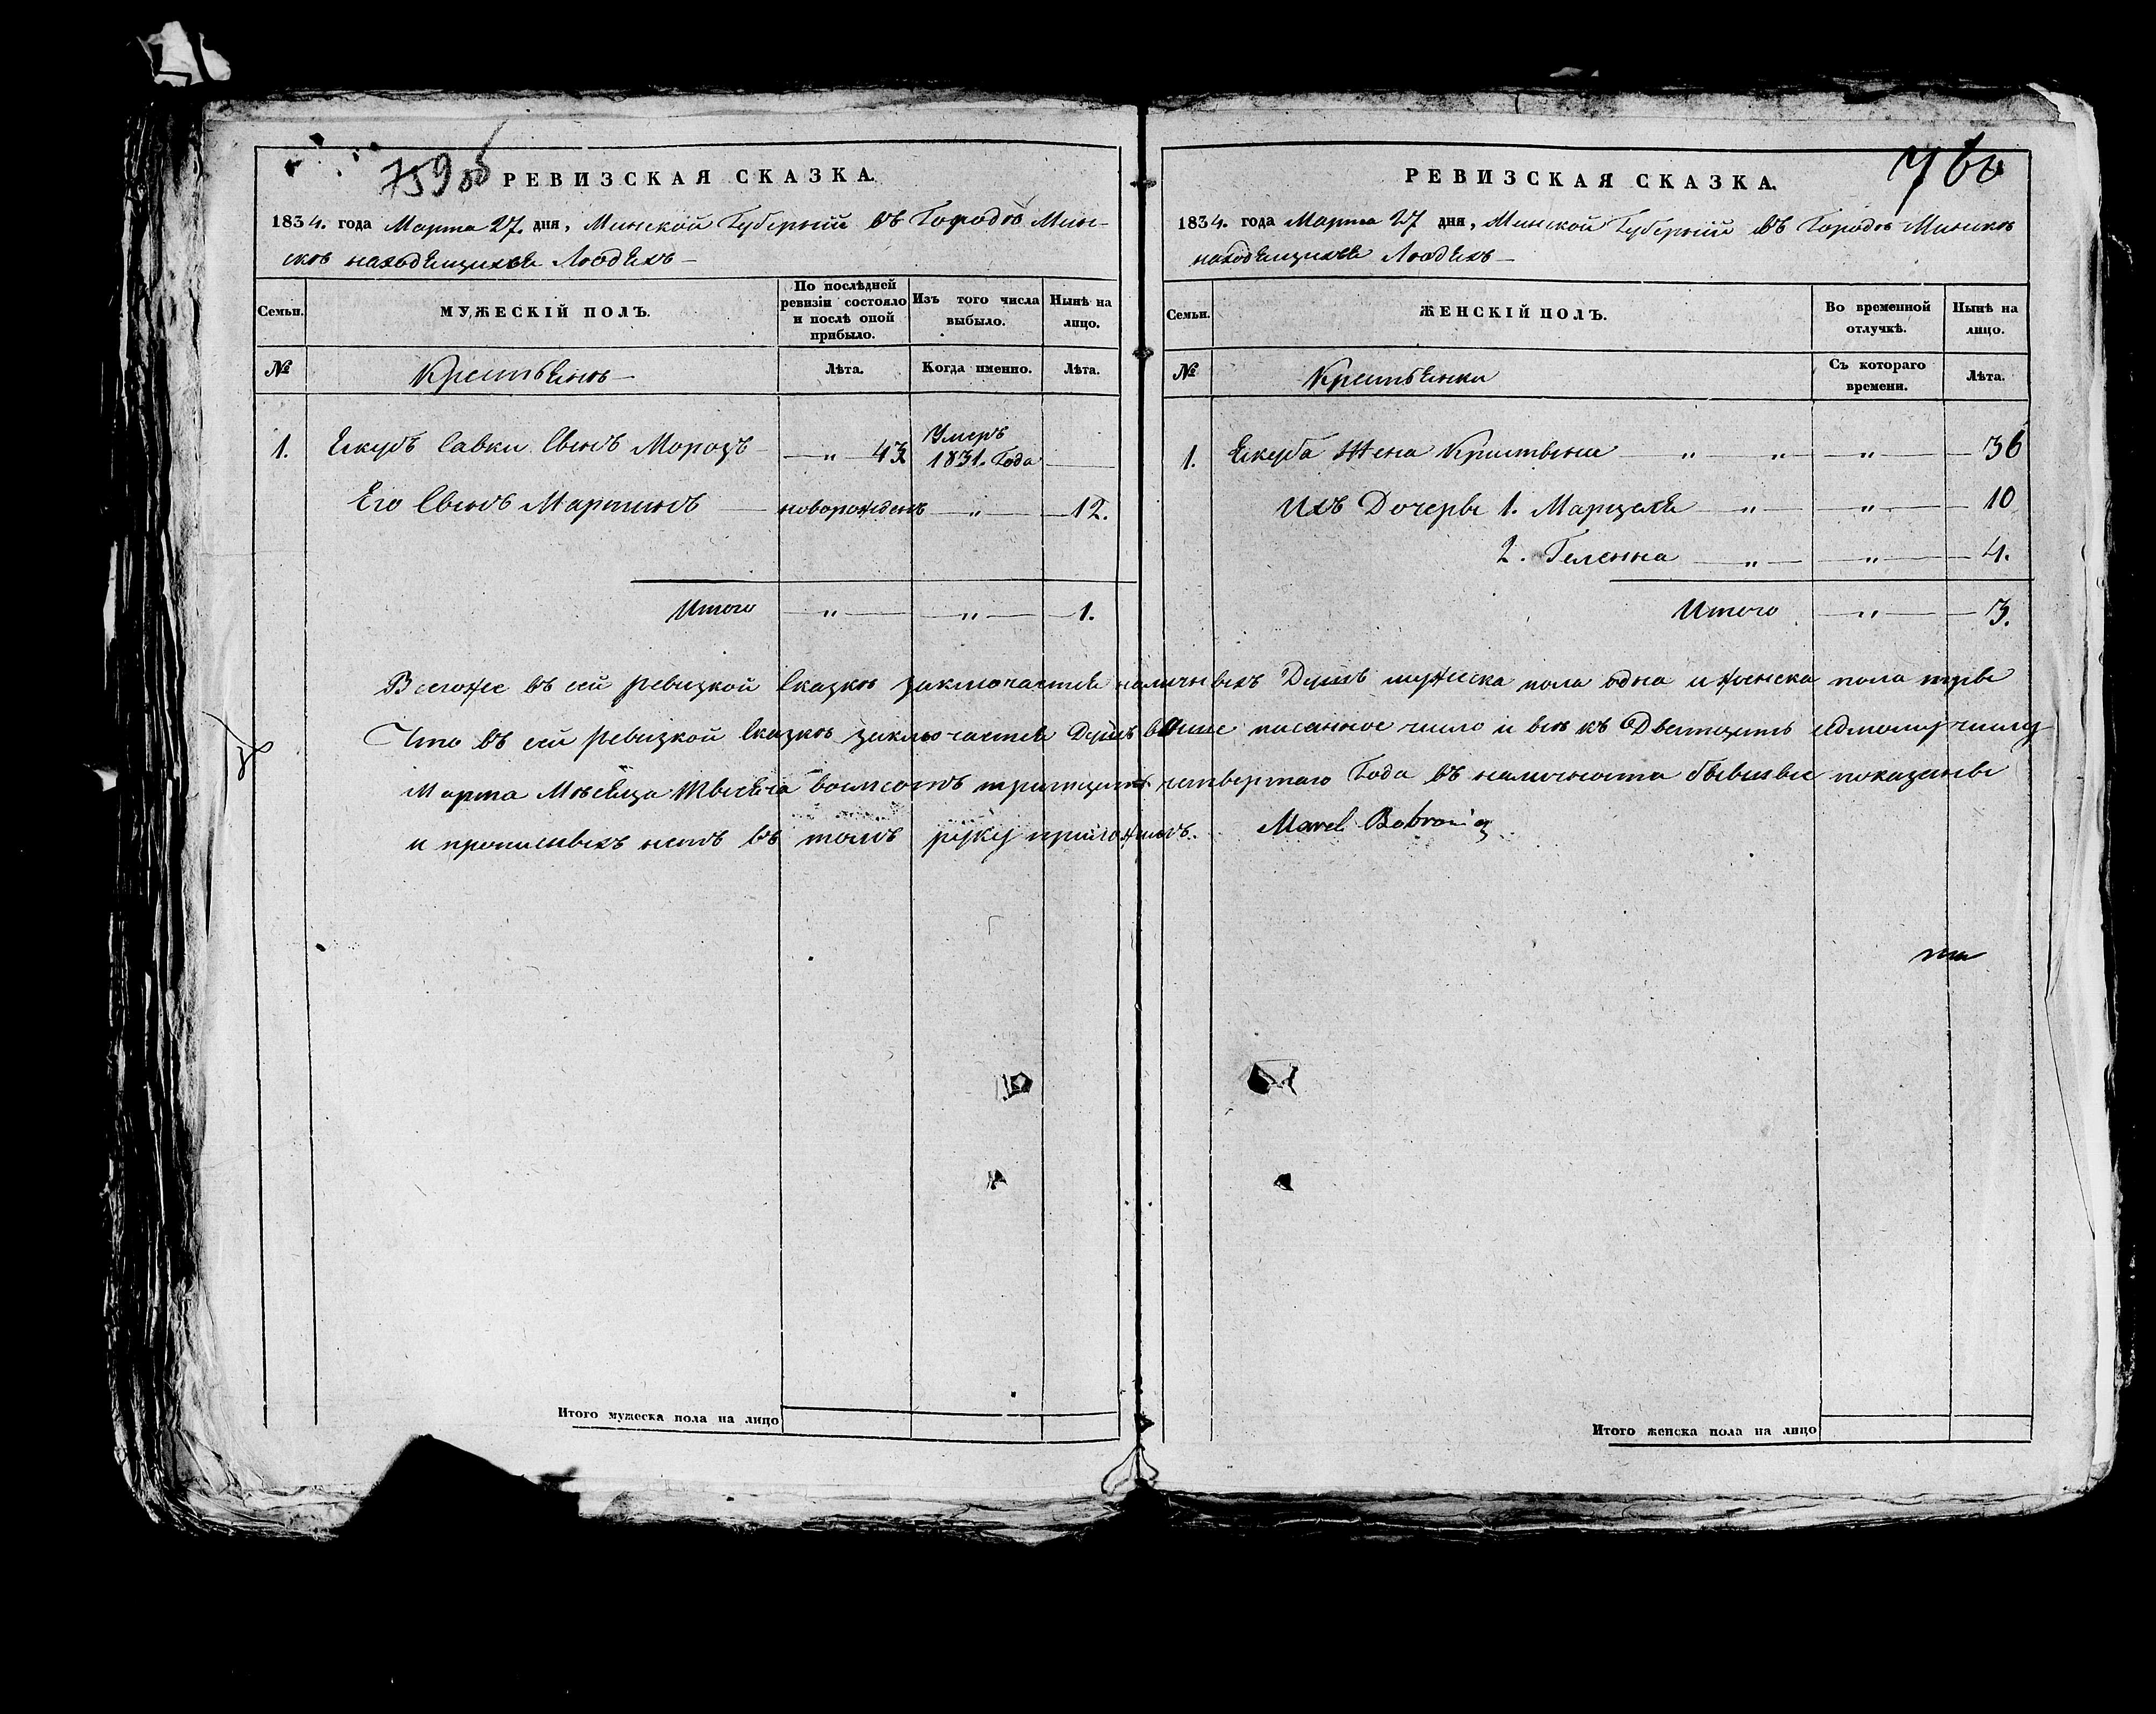 759 об
РЕВИЗСКАЯ СКАЗКА.
1834. года Марта 27. дня, Минской Губерніи въ Городѣ Мин-
скѣ находящихся Людяхъ
Семьи.
МУЖЕСКІЙ ПОЛЪ.
По послѣдней ревизіи состояло и послѣ оной прибыло.
Изъ того числа выбыло.
Нынѣ на лицо.
№
Лѣта.
Когда именно.
Лѣта.
1. Якубъ Савки Сынъ Морозъ — " — 43 Умеръ 1831. Года —
Его Сынъ Мартинъ — новорожденъ — " — 12.
Итого — " — " — 1.
Итого мужеска пола на лицо
760
РЕВИЗСКАЯ СКАЗКА.
1834. года Марта 27 дня, Минской Губерніи въ Городѣ Минскѣ
находящихся Людяхъ
Семьи.
ЖЕНСКІЙ ПОЛЪ.
Во временной отлучкѣ.
Нынѣ на лицо.
№
Крестьянки
Съ котораго времени.
Лѣта.
1. Якуба Жена Криствина — " — " — " — 36
Ихъ Дочеры 1. Марцеля — " — " — 10
2. Геленна — " — " — 4.
Итого — " — 3.
Всегоже въ сей ревизкой Сказкѣ заключается наличныхъ Душъ мужеска пола одна и женска пола тры
Что въ сей ревизкой Сказкѣ заключается Душъ выше писанное число и всѣ къ Дватцать седмому числу
Марта Мѣсяца Тысяча восмсотъ тритцать четвертаго Года въ наличности бывшые показаны
и прописныхъ нетъ въ томъ руку приложилъ.
Итого женска пола на лицо